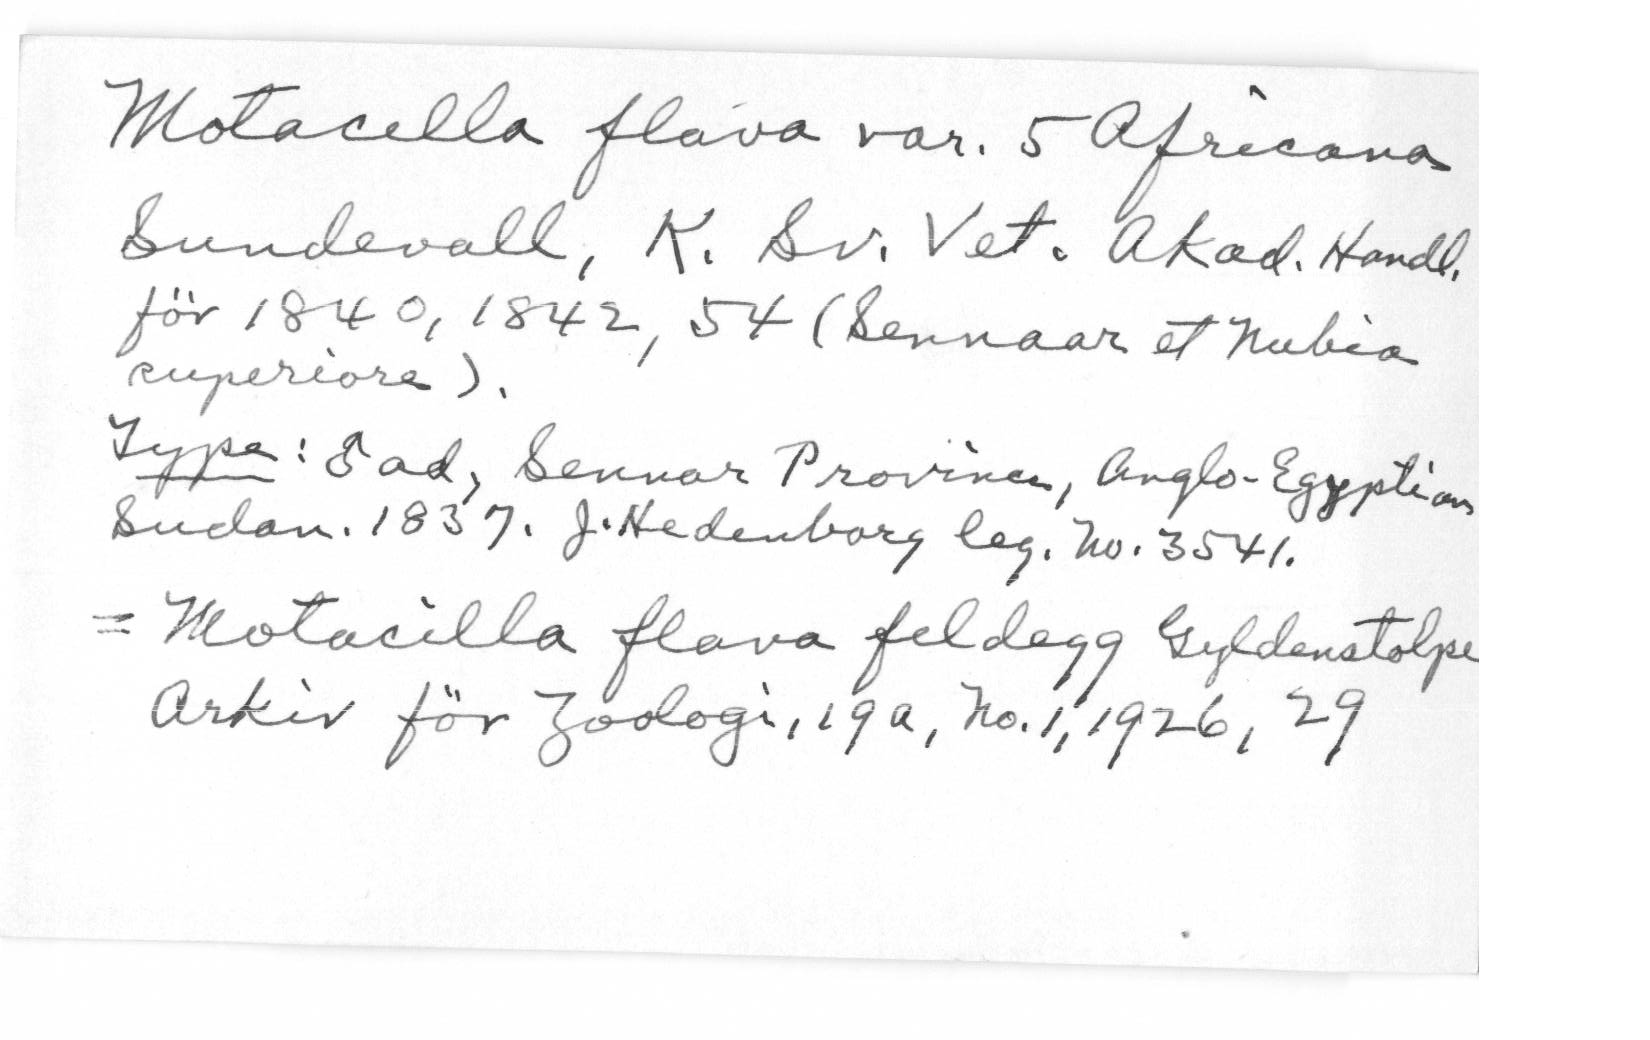 Motacilla flava var. 5 Africana
Sundevall, K. Sv. Vet. Akad. Handl.
för 1840, 1842, 54 (Sennaar et Nubia
superiore).
Type: ad, Sennar Province, Anglo-Egyptian
Sudan. 1837. J. Hedenborg leg. No. 3541.
= Motacilla flava feldegg Gyldenstolpe
Arkiv för Zoologi, 19a, No. 1, 1926, 29